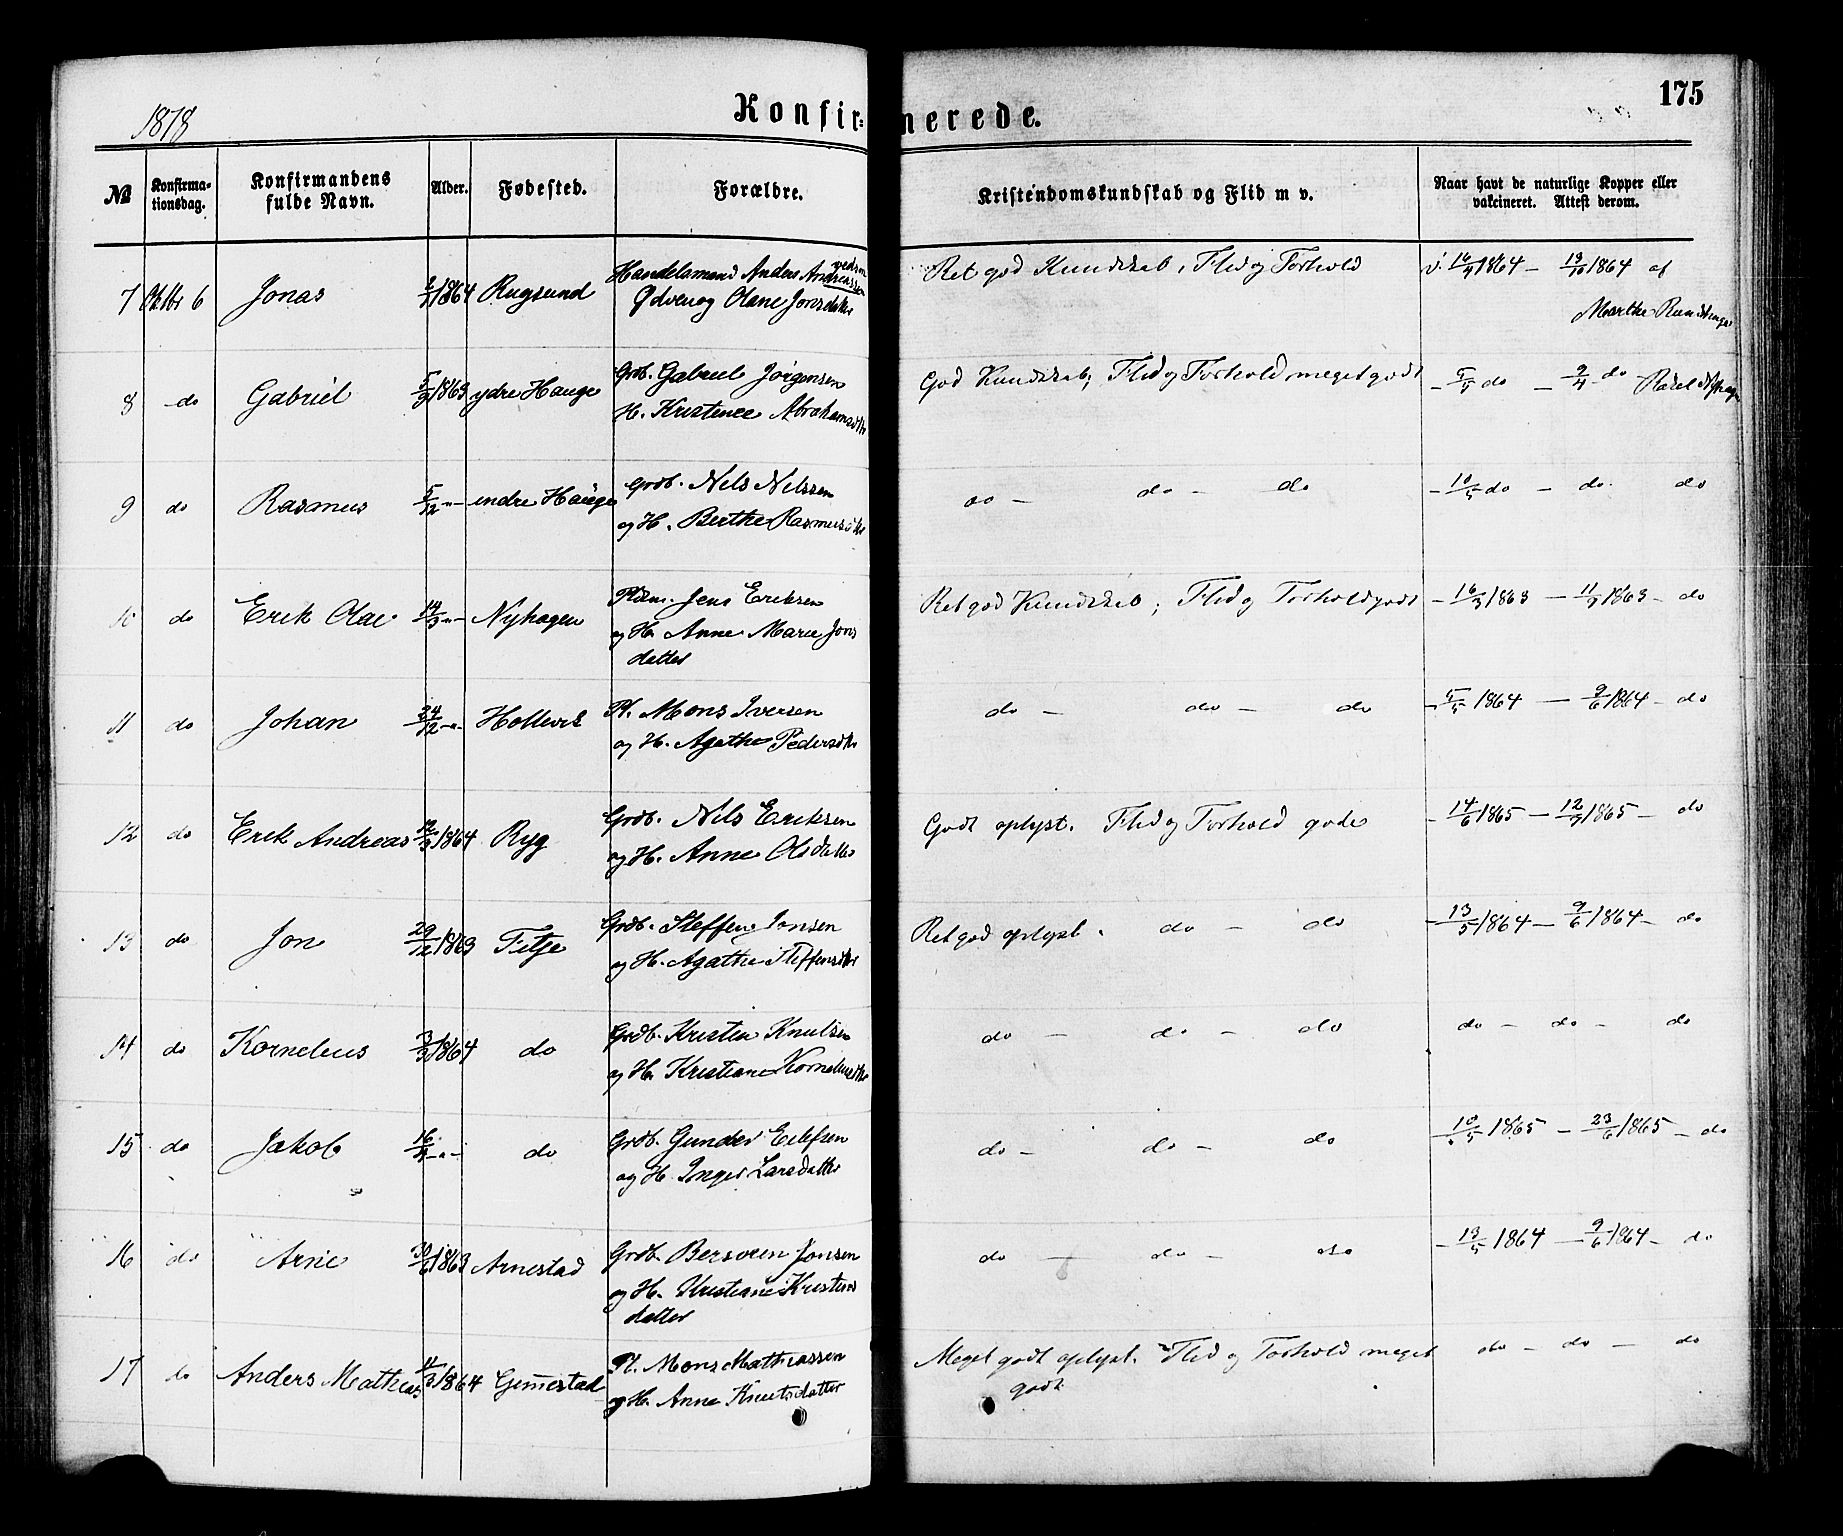 1878
Konfir=
merede.
175
No
Konfirma-
tionsdag.
Konfirmandens
fulde Navn.
Alder.
Fødested.
Forældre.
Kristendomskundskab og Flid m v.
Naar havt de naturlige Kopper eller
vakcineret. Attest derom.
7 Oktbr 6 Jonas 1864 Rugsund Handelsmand Anders Andreassen
og Olane Jonsdatter
Ret god Kundskab, Flid og Forhold v. 1864 – 1864 af
Marthe
8 do Gabriel 5/9 1863 ydre Hauge Grdb. Gabriel Jörgensen
H. Kristence Abrahamsdtr
God Kundskab; Flid og Forhold meget godt – 5/5 do – 9/4 do
9 do Rasmus 5/12 –"– indre Hauge Grdb. Nels Nelssen
og H. Berthe Rasmusdtr
do – do – do – 10/5 do – do do
10 do Erik Olai 14/3 –"– Nyhagen Pldsm. Jens Eriksen
og H. Anne Marie Jons
datter
Ret god Kundskab; Flid og Forhold godt – 16/3 1863 – 11/9 1863 – do
11 do Johan 24/12 –"– Hollevik Pl. Mons Iversen
og H. Agathe Pedersdtr
do – do – do – 5/5 1864 – 9/6 1864 – do
12 do Erik Andreas 12/3 1864 Ryg Grdb. Nils Eriksen
og H. Anne Olsdatter
Godt oplyst. Flid og Forhold gode – 14/6 1865 – 12/9 1865 – do
13 do Jon 29/12 1863 Fitje Grdb. Steffen Jonsen
og H. Agathe Steffensdtr
Ret god oplyst. do – do – 13/5 1864 – 9/6 1864 – do
14 do Kornelius 3/3 1864 do Grdb. Kristen Knutsen
og H. Kristiane Korneliusdtr
do – do – do do – do – do
15 do Jakob 16/4 –"– do Grdb. Gunder Eilefsen
og H. Inger Larsdatter
do – do – do – 10/5 1865 – 23/6 1865 – do
16 do Arne 30/6 1863 Arnestad Grdb. Bersven Jonsen
og H. Kristiane Kristens
datter
do – do – do – 13/5 1864 – 9/6 1864 – do
17 do Anders Mathias 11/3 1864 Gimmestad Pl. Mons Mathiassen
og H. Anne Knutsdatter
Meget godt oplyst. Flid og Forhold meget do – do – do
godt